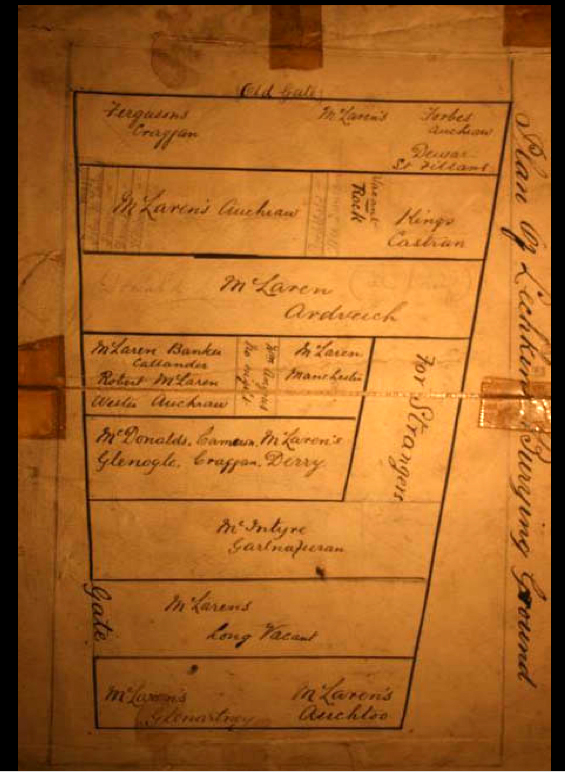 Old Gate
Fergusons
Craggan
McLaren's
Forbes
Auchraw
Dewar
St Fillans
McLaren's Auchraw
Vacant
Rock
Kings
Castran
McLaren
Ardveich
McLaren Banker
Callander
Robert McLaren
Wester Auchraw
Wm Angus
No right
McLaren
Manchester
For Strangers
McDonalds, Cameron, McLaren's
Glenogle, Craggan, Derry
McIntyre
Gate
McLarens
Long Vacant
McLaren's
Glenartney
McLaren's
Auchtoo
Plan Of Leckine Burying Ground